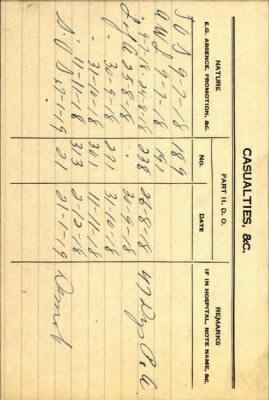 CASUALTIES, &C.
NATURE
E.G. ABSENCE, PROMOTION, &C.
PART II. D. O.
NO.
DATE
REMARKS
IF IN HOSPITAL, NOTE NAME, &C.
TOS 9-7-18 189
AWL 9-7-18 191
9-7-18 24-8-18 238 26-8-18 47 Dys P. &
25-8-18
30-9-18 271 30-9-18
31-10-18 301 31-10-18
11-11-18 313 11-11-18
2-12-18
S.O.S 27-1-19 21 21-1-19 Demob